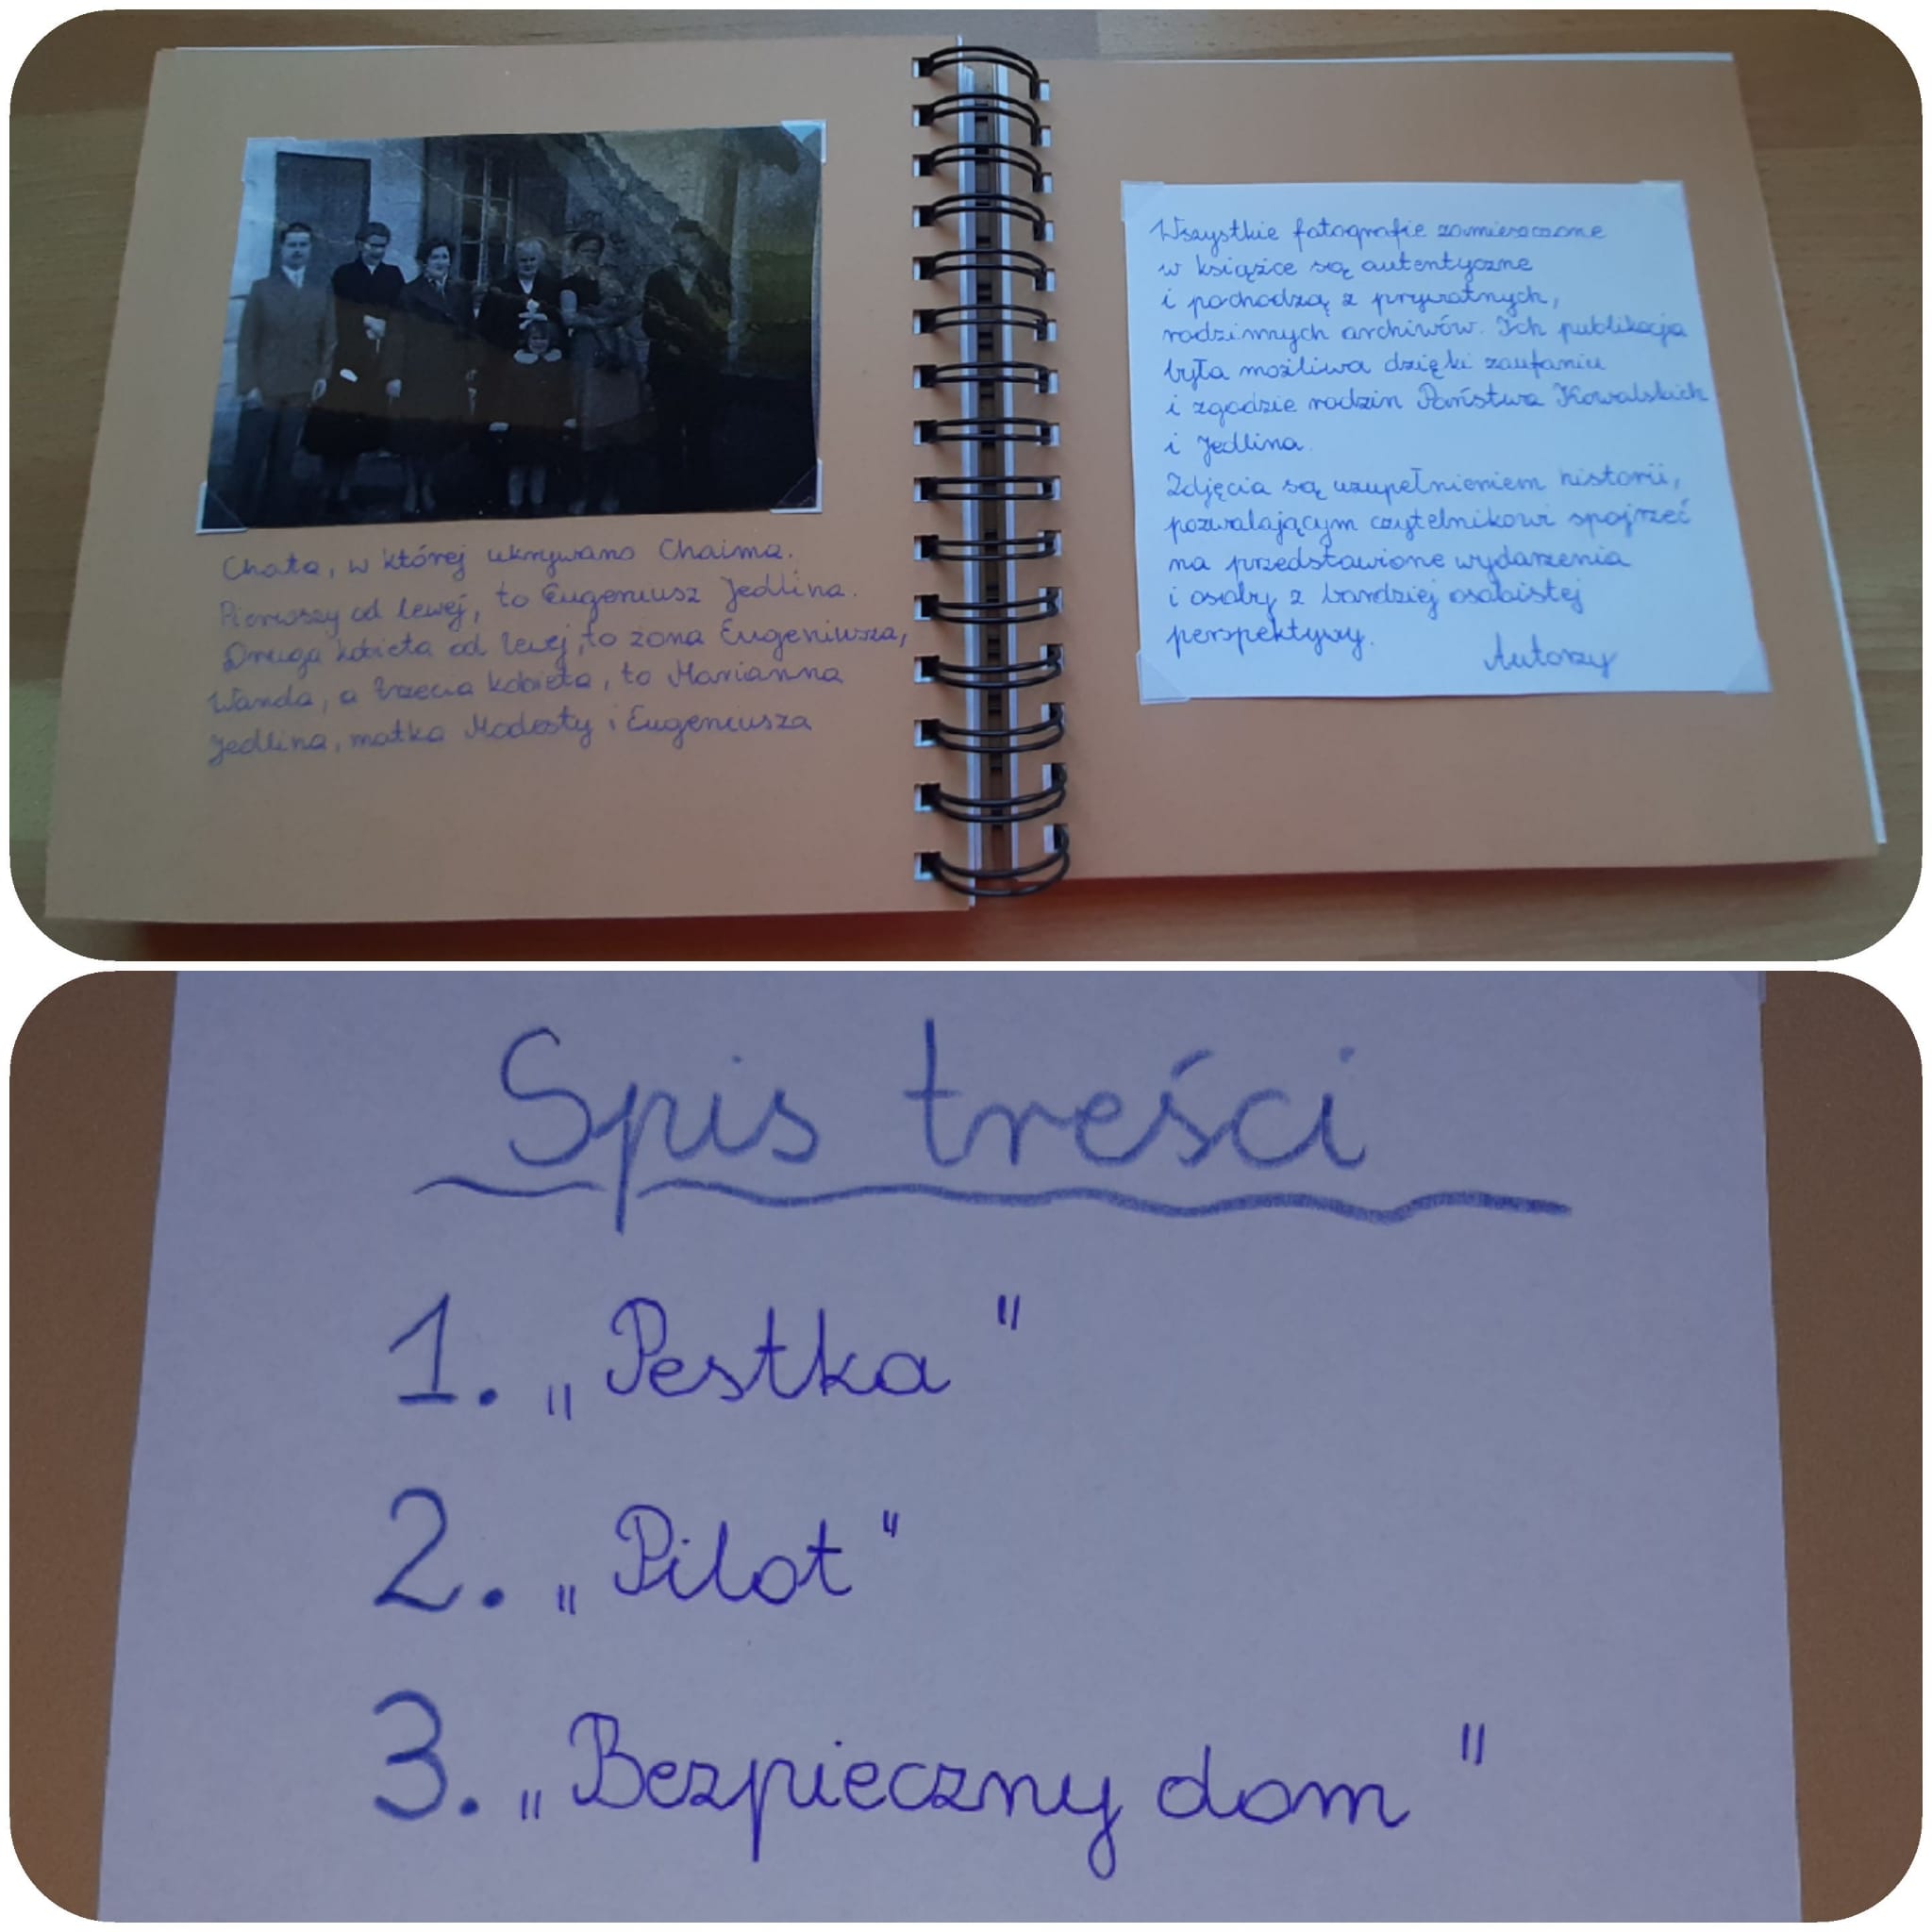 Chata, w której ukrywano Chaima.
Pierwszy od lewej, to Eugeniusz Jedlina.
Druga kobieta od lewej, to żona Eugeniusza,
Wanda, a trzecia kobieta, to Marianna
Jedlina, matka Modesty i Eugeniusza
Wszystkie fotografie zamieszczone
w książce są autentyczne
i pochodzą z prywatnych,
rodzinnych archiwów. Ich publikacja
była możliwa dzięki zaufaniu
i zgodzie rodzin Państwa Kowalskich
i Jedlina.
Zdjęcia są uzupełnieniem historii,
pozwalającym czytelnikowi spojrzeć
na przedstawione wydarzenia
i osoby z bardziej osobistej
perspektywy.
Autorzy
Spis treści
1. „Pestka"
2. „Pilot"
3. „Bezpieczny dom"